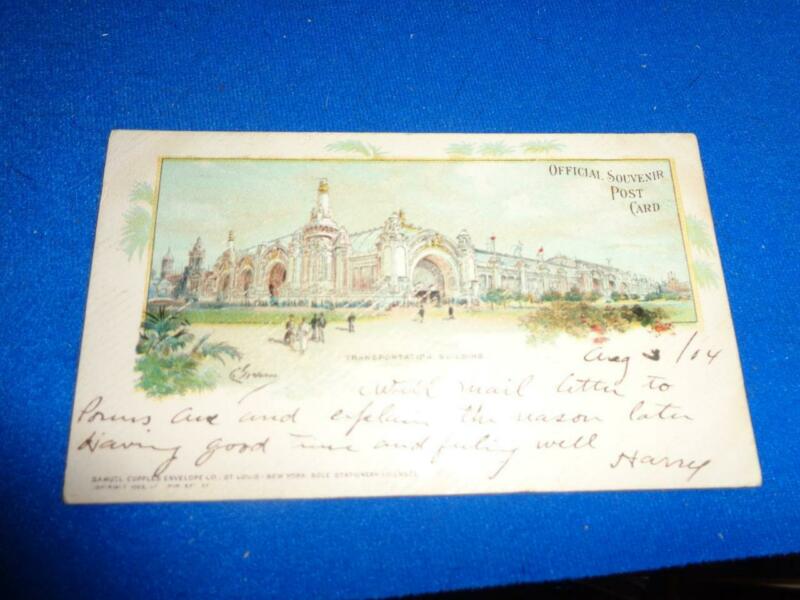 OFFICIAL SOUVENIR
POST
CARD
TRANSPORTATION BUILDING
Aug 3/04
Will mail letter to
Ave and explain the reason later
Having good time and feeling well
Harry
SAMUEL CUPPLES ENVELOPE CO., ST LOUIS - NEW YORK, SOLE STATIONERY LICENSEE